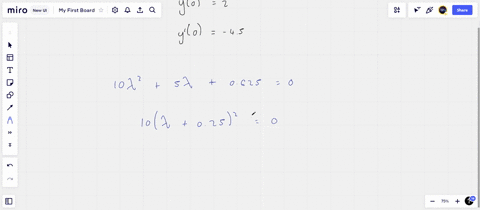 miro New UI My First Board Share
y(0) = 2
y'(0) = -4.5
10λ² + 5λ + 0.625 = 0
10(λ + 0.25)² = 0
75%